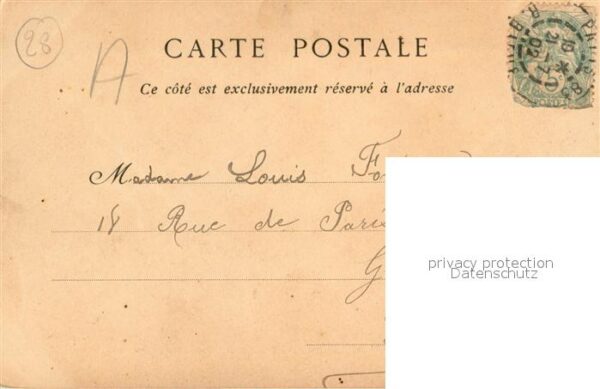 28
A
CARTE POSTALE
Ce côté est exclusivement réservé à l'adresse
Madame Louis
18 Rue de Paris
privacy protection
Datenschutz